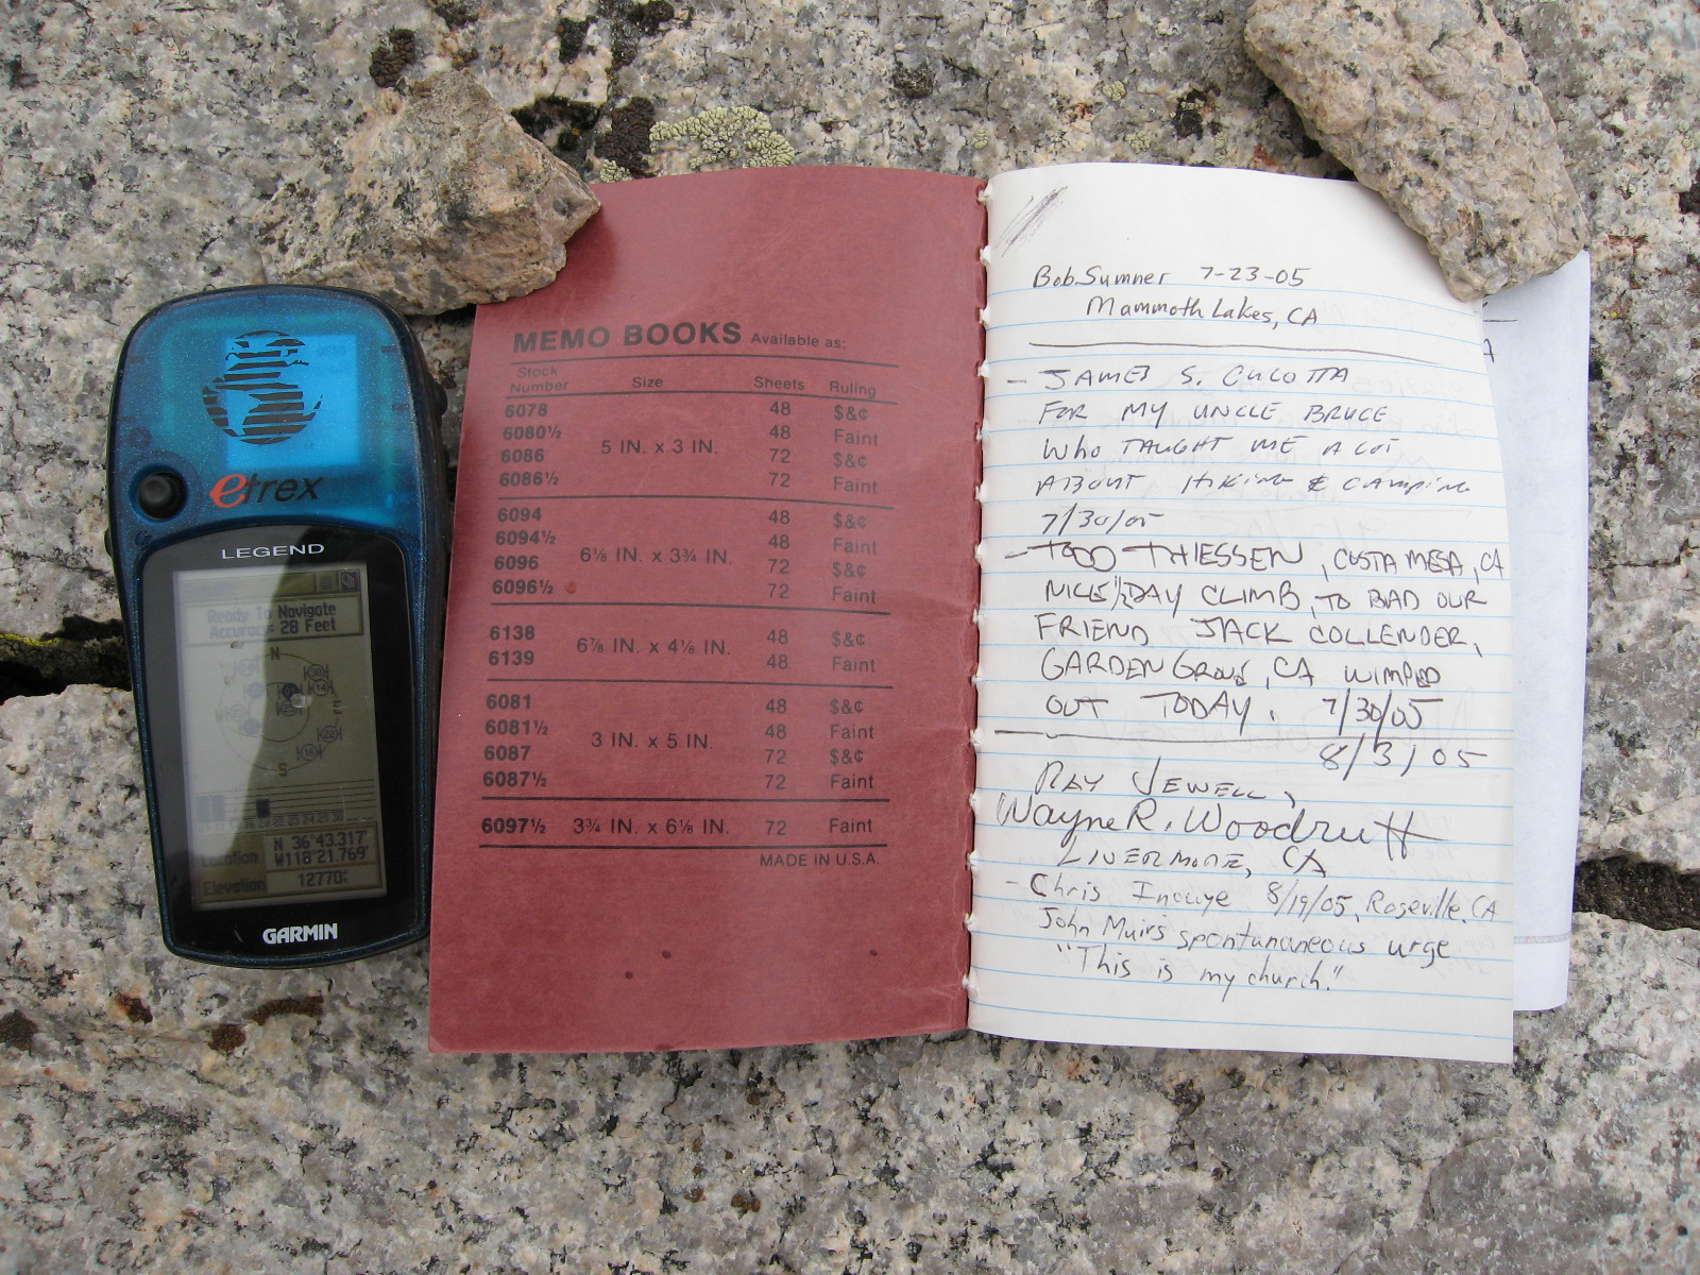 etrex
LEGEND
Ready To Navigate
Accuracy: 28 Feet
N
E
S
Location
N 36°43.317'
W118°21.769'
Elevation
12770
GARMIN
MEMO BOOKS Available as:
Stock Number Size Sheets Ruling
6078 48 $&¢
6080½ 48 Faint
5 IN. x 3 IN.
6086 72 $&¢
6086½ 72 Faint
6094 48 $&¢
6094½ 48 Faint
6⅛ IN. x 3¾ IN.
6096 72 $&¢
6096½ 72 Faint
6138 48 $&¢
6⅞ IN. x 4⅛ IN.
6139 48 Faint
6081 48 $&¢
6081½ 48 Faint
3 IN. x 5 IN.
6087 72 $&¢
6087½ 72 Faint
6097½ 3¾ IN. x 6⅛ IN. 72 Faint
MADE IN U.S.A.
Bob Sumner 7-23-05
Mammoth Lakes, CA
- JAMES S. CULOTTA
FOR MY UNCLE BRUCE
WHO TAUGHT ME A LOT
ABOUT HIKING & CAMPING
7/30/05
- TODD THIESSEN, COSTA MESA, CA
NICE ½ DAY CLIMB, TO BAD OUR
FRIEND JACK COLLENDER,
GARDEN GROVE, CA WIMPED
OUT TODAY. 7/30/05
8/3/05
RAY JEWELL,
Wayne R. Woodruff
LIVERMORE, CA
- Chris Inouye 8/19/05, Roseville, CA
John Muir's spontunaneous urge
"This is my church."